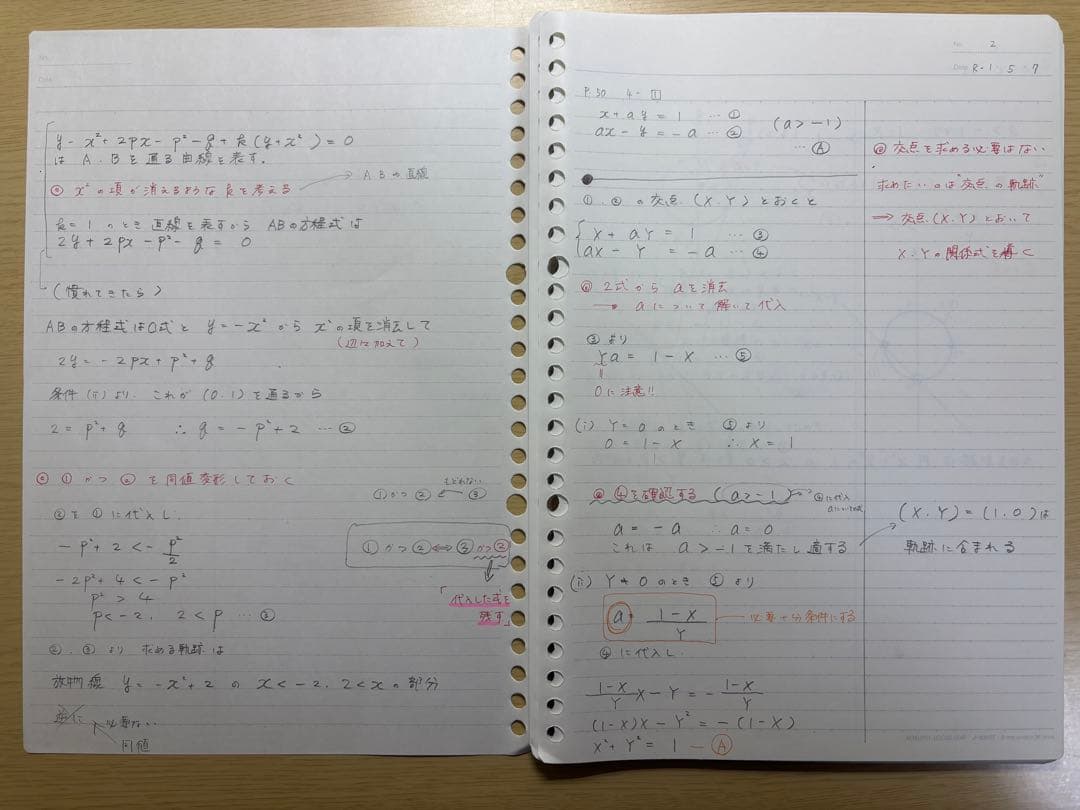 y - x² + 2px - p² - q + k(y + x²) = 0
は A、B を通る曲線を表す。
◎ x² の項が消えるような k を考える
→ ABの直線
k = 1 のとき 直線を表すから ABの方程式は
2y + 2px - p² - q = 0
(慣れてきたら)
ABの方程式は①式と y = -x² から x²の項を消去して
(辺々加えて)
2y = -2px + p² + q
条件(ii)より、これが(0.1)を通るから
2 = p² + q ∴ q = -p² + 2 …②
◎ ① かつ ② を同値変形しておく
もどれない
①かつ② ← ③
② を ① に代入し、
-p² + 2 < -p²/2
① かつ ② ⇔ ③ かつ ②
-2p² + 4 < -p²
p² > 4
「代入した式を
残す」
p < -2, 2 < p …③
②, ③ より 求める軌跡は
放物線 y = -x² + 2 の x < -2, 2 < x の部分
逆に
必要ない
同値
No. 2
Date R-1 5 7
P.50 4-1
x + ay = 1 …①
ax - y = -a …②
(a > -1)
…Ⓐ
①, ② の交点 (X.Y) とおくと
X + aY = 1 …③
aX - Y = -a …④
◎ 2式から a を消去
→ a について解いて代入
③ より
Ya = 1 - X …⑤
0に注意!!
(i) Y = 0 のとき ⑤ より
0 = 1 - X ∴ X = 1
◎ ④を確認する (a > -1)
④に代入
a = -a ∴ a = 0
これは a > -1 を満たし適する
(ii) Y ≠ 0 のとき ⑤ より
a = (1-X)/Y
必要十分条件にする
④ に代入し、
(1-X)/Y X - Y = -(1-X)/Y
(1-X)X - Y² = -(1-X)
X² + Y² = 1 — Ⓐ
◎ 交点を求める必要はない
求めたいのは"交点の軌跡"
⇒ 交点(X.Y)とおいて
X.Yの関係式を導く
(X.Y) = (1.0) は
軌跡に含まれる